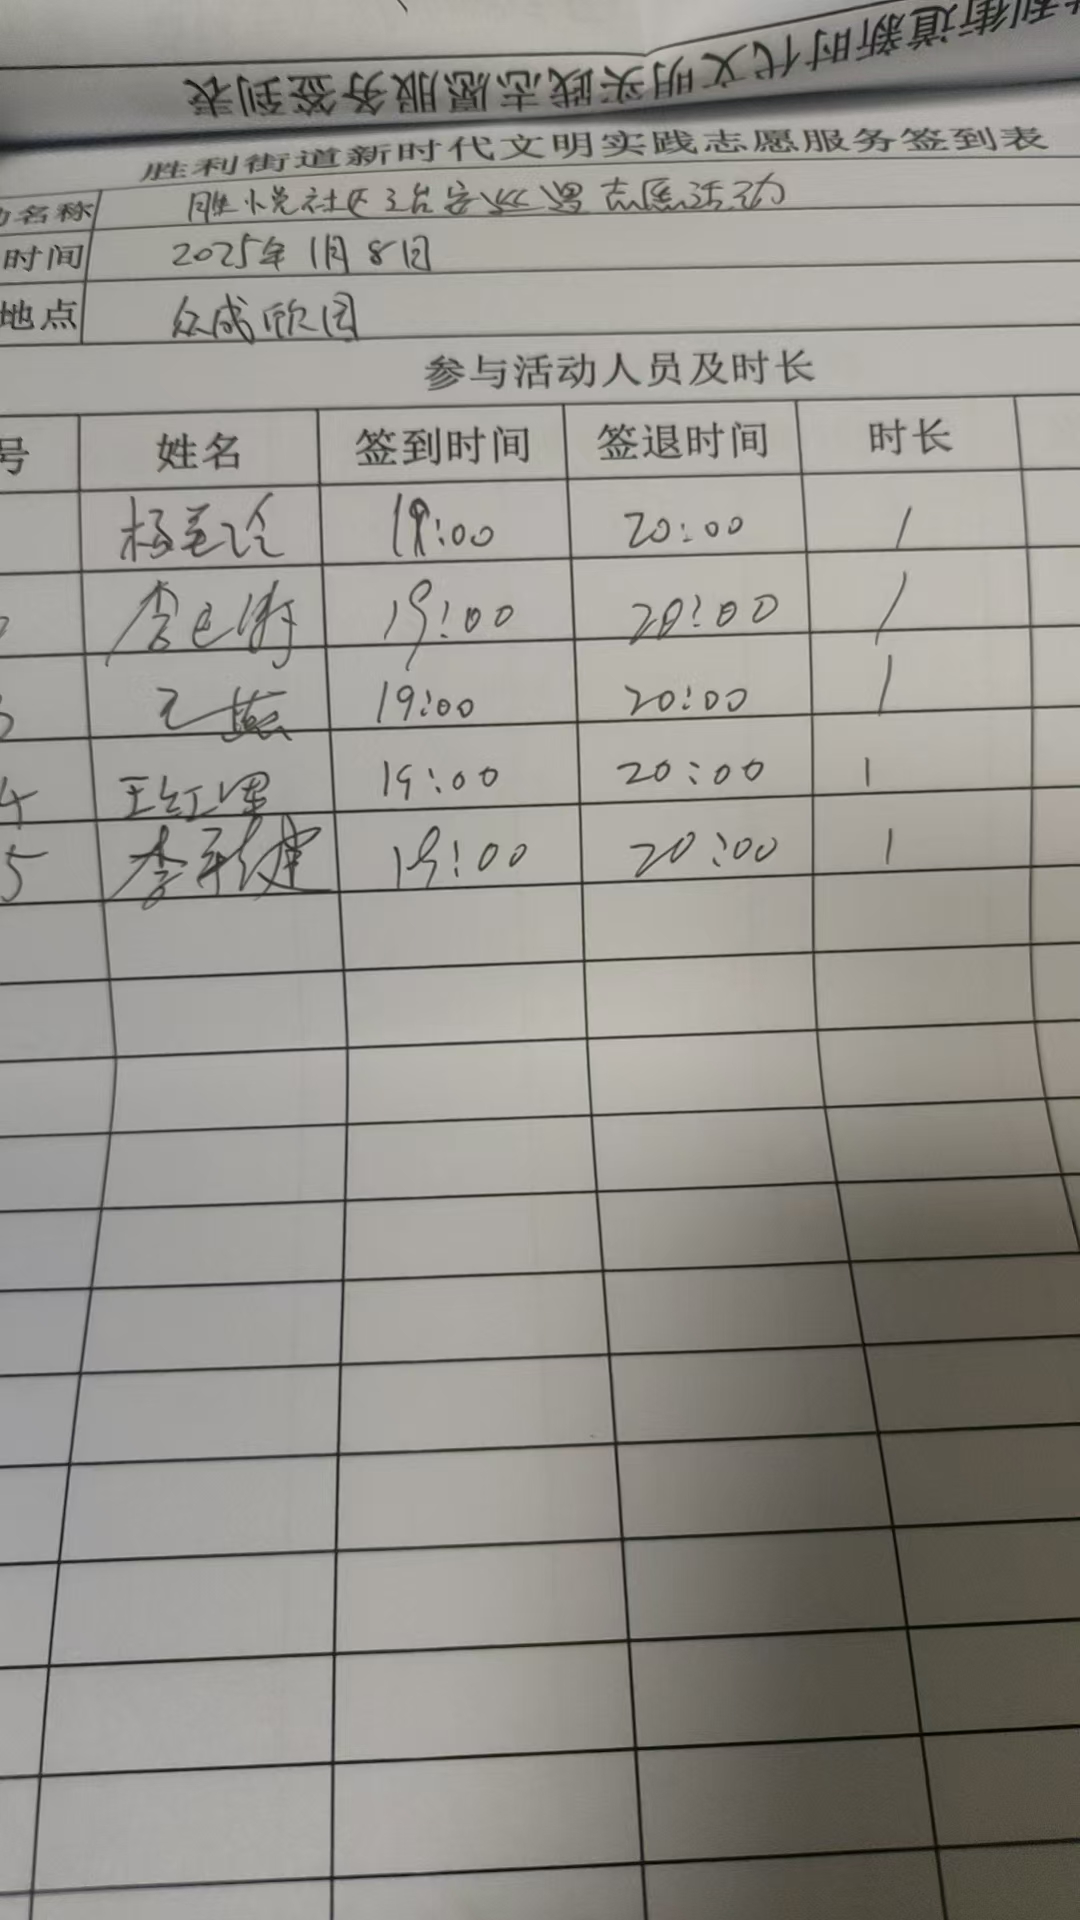 胜利街道新时代文明实践志愿服务签到表
胜利街道新时代文明实践志愿服务签到表
名称 胜悦社区治安巡逻志愿活动
时间 2025年1月8日
地点 众成欣园
参与活动人员及时长
号 姓名 签到时间 签退时间 时长
杨 19:00 20:00 1
2 李 19:00 20:00 1
3 王燕 19:00 20:00 1
4 王红军 19:00 20:00 1
5 李健 19:00 20:00 1